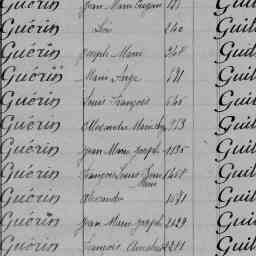 Guérin Jean Marie Eugène Guil
Guérin Léon 240 Guil
Guérin Joseph Marie 348 Guil
Guérin Marie Ange 521 Guil
Guérin Louis François 545 Guil
Guérin Alexandre Marie 953 Guil
Guérin Jean Marie Joseph 1135 Guil
Guérin François Louis Jean Marie 1464 Guil
Guérin Alexandre 1571 Guil
Guérin Jean Marie Joseph 2124 Guil
Guérin François 2281 Guil